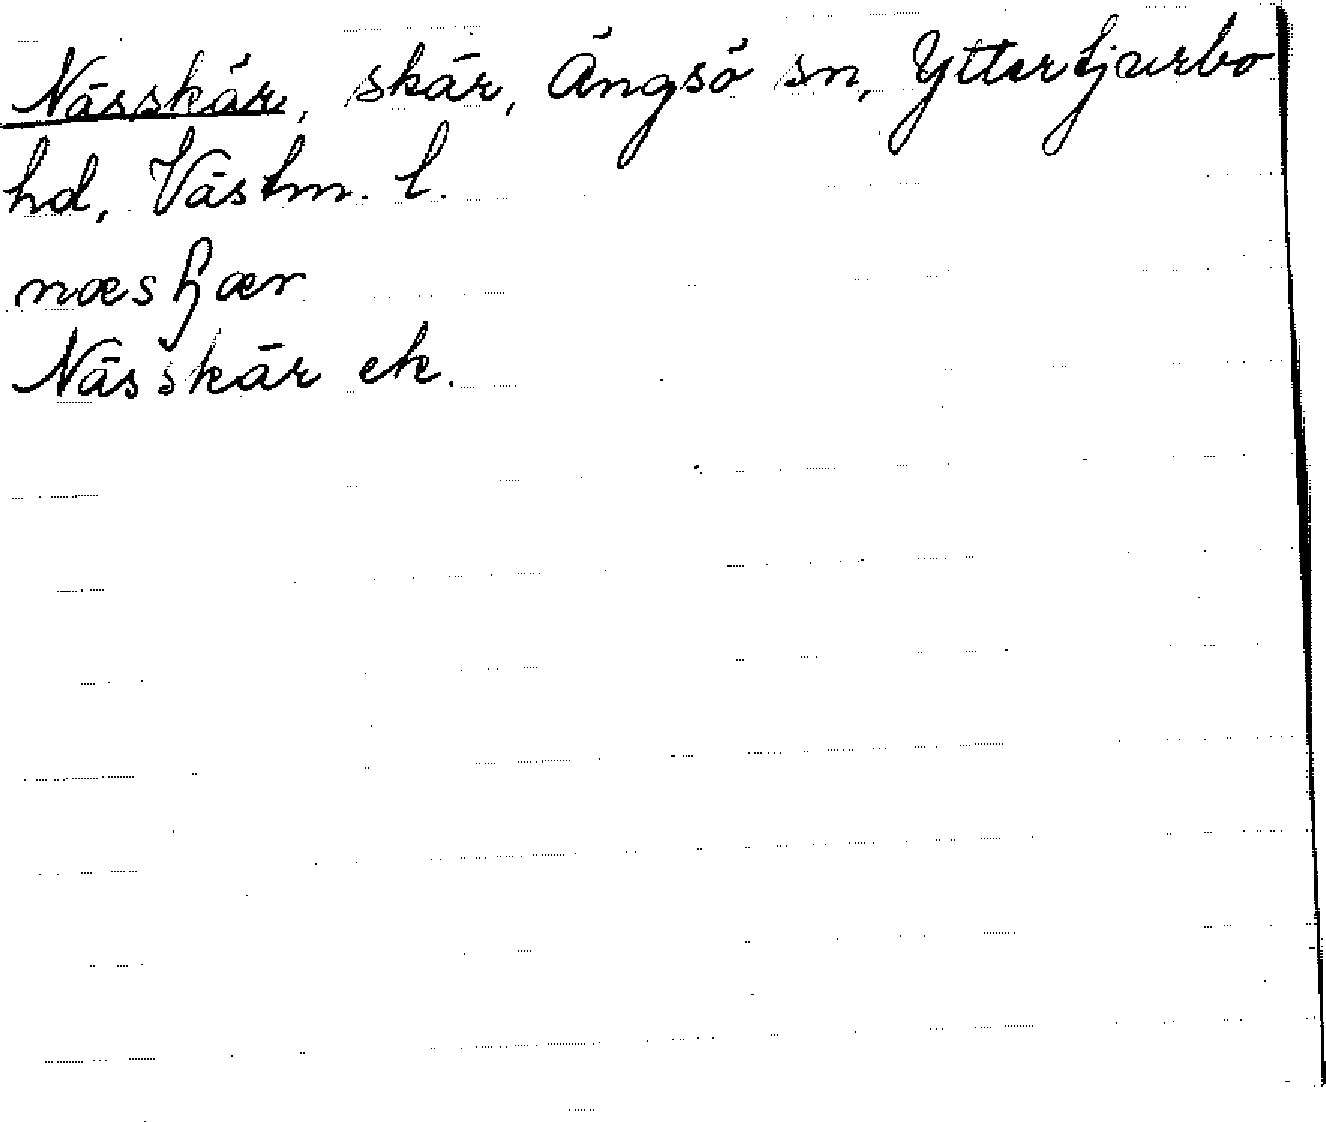 Nässkär, skär, Ängsö sn, Yttertjurbo
hd, Västm. l.
næsɧær
Nässkär ek.